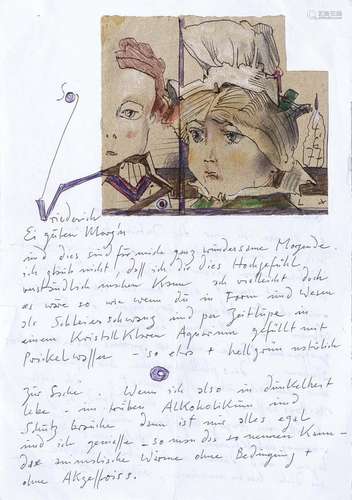 Friederich
Ei guten Morgen
und dies sind für mich ganz wundersame Morgende.
ich glaub nicht, daß ich dir dies Hochgefühl
verständlich machen kann vielleicht doch
es wäre so wie wenn du in Form und Wesen
als Schleierschwanz und per Zeitlupe in
einem Kristallklaren Aquarium gefüllt mit
Prickelwasser - so etwa + hellgrün natürlich
Zur Sache. Wenn ich also in dunkelheit
lebe - im trüben Alkoholikum und
Schutz brauche dann ist mir alles egal
und ich genieße - so man das so nennen kann -
das animalische Wärme ohne Bedingung +
ohne